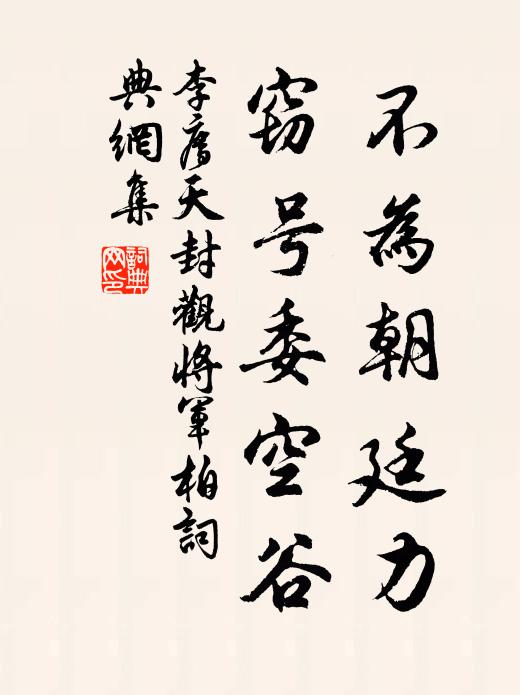 不為朝廷力
窃号委空谷
李廌天封觀將軍柏詞
典網集
詞典
网印